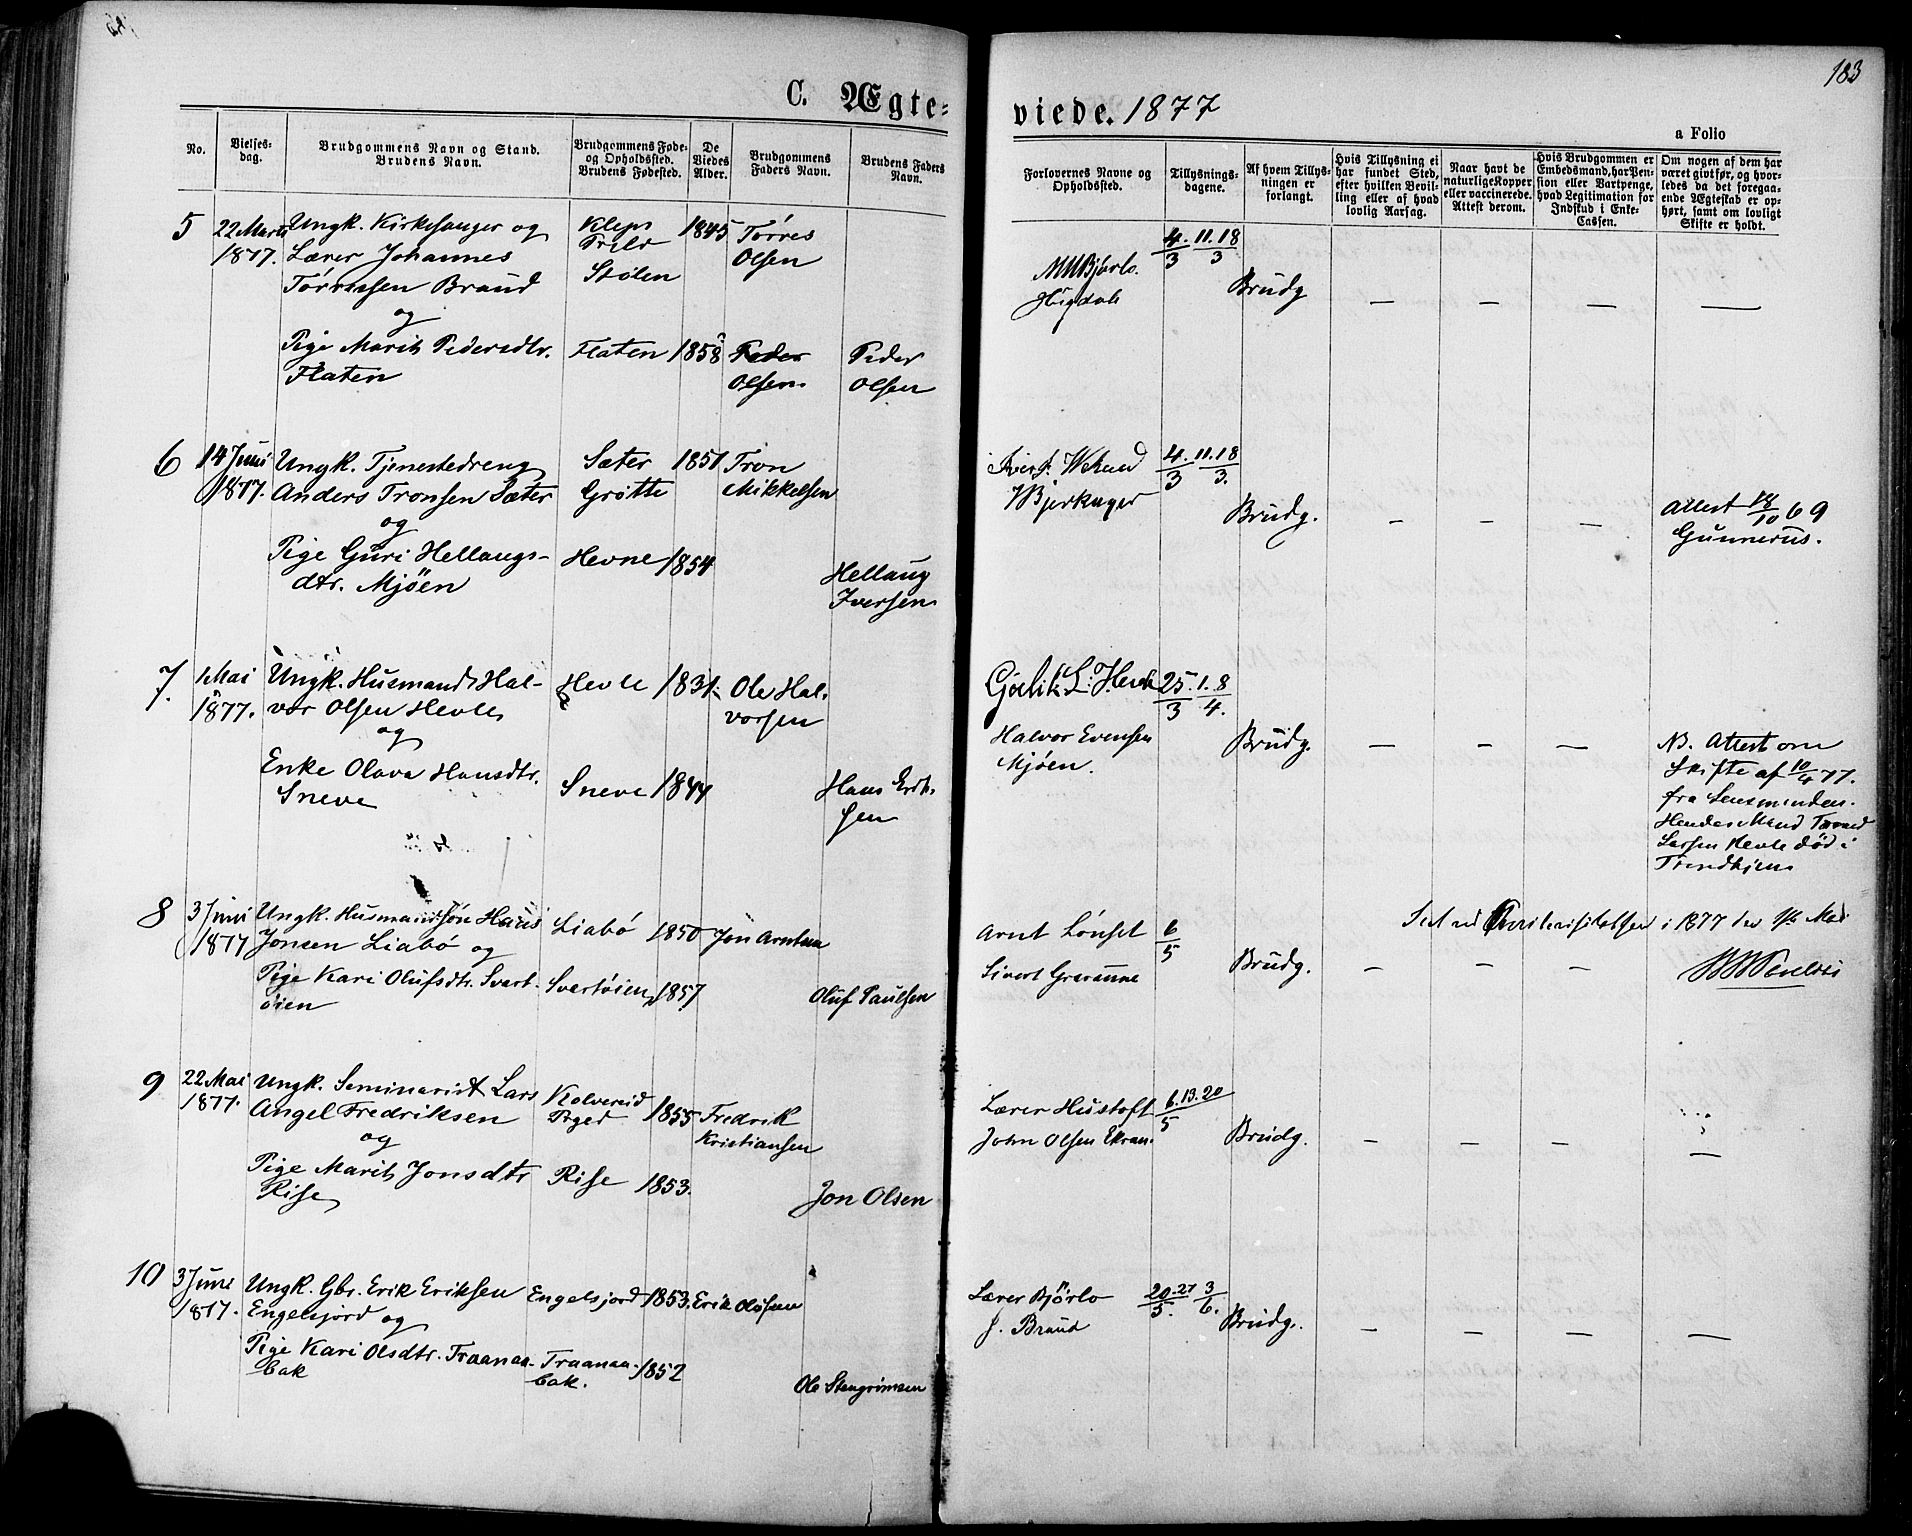 183
C. Ægte-
viede. 1877
a Folio
No.
Vielses-
dag.
Brudgommens Navn og Stand.
Brudens Navn.
Brudgommens Føde-
og Opholdssted.
Brudens Fødested.
De
Viedes
Alder.
Brudgommens
Faders Navn.
Brudens Faders
Navn.
Forlovernes Navne og
Opholdssted.
Tillysnings-
dagene.
Af hvem Tillys-
ningen er
forlangt.
Hvis Tillysning ei
har fundet Sted,
efter hvilken Bevil-
ling eller af hvad
lovlig Aarsag.
Naar havt de
naturlige Kopper
eller vaccinerede.
Attest derom.
Hvis Brudgommen er
Embedsmand, har Pen-
sion eller Vartpenge,
hvad Legitimation for
Indskud i Enke-
Cassen.
Om nogen af dem har
været givt før, og hvor-
ledes da det foregaa-
ende Ægteskab er op-
hørt, samt om lovligt
Skifte er holdt.
5
22 Marts
1877.
Ungk. Kirkesanger og
Lærer Johannes
Tørresen Braud
og
Pige Marit Pedersdtr.
Flaten
Klep
Stølen
Flaten
1845
1858
Tørres
Olsen
Peder
Olsen
Peder
Olsen
Bjørlo.
4. 11. 18
3 3
Brudg
— — — —
6
14 Juni
1877.
Ungk. Tjenestedreng
Anders Tronsen Sæter
og
Pige Guri Hellaugs-
dtr. Mjöen
Sæter
Grötte
Hevne
1851
1854
Tron
Mikkelsen
Hellaug
Iversen
Bjerkager
4. 11. 18
3 3.
Brudg.
— — —
Attest 18/10 69
Gunnerus.
7.
1 Mai
1877.
Ungk. Husmand Hal-
vor Olsen Hevle
og
Enke Olava Hansdtr.
Sneve
Hevle
Sneve
1831.
1844
Ole Hal-
vorsen
Hans Erik-
sen
25. 1. 8
3 4.
Halvor Evensen
Mjöen.
Brudg.
— — —
NB. Attest om
Skifte af 10/4 77.
fra Lensmanden.
Hendes Mand
Larsen Hevle död i
Trondhjem
8
3 Juni
1877
Ungk. Husmandssön Hans
Jonsen Liabö og
Pige Kari Olufsdtr. Svart-
öien
Liabö
Svartöien
1850
1857
Jon Arntsen
Oluf Paulsen
Arnt Lönset
Sivert Gravaune
6
5
Brudg.
— — —
Set ved i 1877 den Mai
9
22 Mai
1877.
Ungk. Seminarist Lars
Angel Fredriksen
og
Pige Marit Jonsdtr
Rise
Kolvereid
Prgd
Rise
1855
1853.
Fredrik
Kristiansen
Jon Olsen
Lærer Hustoft
John Olsen Ekran.
6. 13. 20
5
Brudg.
— — — —
10
3 Juni
1877.
Ungk. Gbr. Erik Eriksen
Engelsjord og
Pige Kari Olsdtr. Traanaa-
bak
Engelsjord
Traanaa-
bak.
1853.
1852
Erik Olufsen
Ole Stengrimsen
Lærer Bjørlo
J. Braud
20. 27 3
5. 6.
Brudg.
— — — —